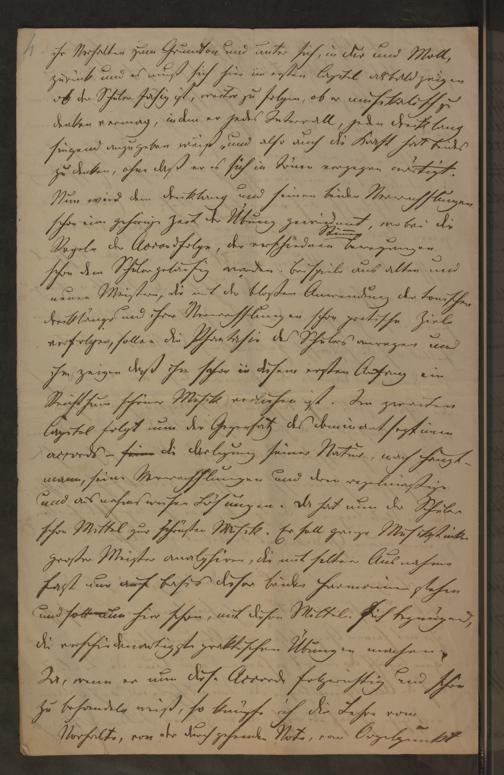 4
ihr Verhalten zum Grundton und unter sich, in Dur und Moll,
zurück und es muß sich hier im ersten Capitel alsbald zeigen
ob der Schüler fähig ist, weiter zu folgen, ob er musikalisch zu
denken vermag, indem er jedes Intervall, jeden Dreiklang
singend anzugeben weiß, und also auch die Kraft hat beides
zu denken, ohne daß er es sich in Tönen vergegenwärtigt.
Nun wird dem Dreiklang und seinen beiden Verwechslungen
schon eine gehörige Zeit der Übung gewidmet, wobei die
Regeln der Accordfolge, der verschiedenen Stimmbewegungen
schon dem Schüler geläufig werden. Beispiele aus alten und
neuen Meistern, die mit der bloßen Anwendung der tonischen
Dreiklänge und ihrer Verwechslungen schon poetische Ziele
verfolgen, sollen die Phantasie des Schülers anregen und
ihm zeigen daß ihm schon in diesem ersten Anfang ein
Reichthum schöner Musik verliehen ist. Im zweiten
Capitel folgt nun der Gegensatz des Dominantseptimen
accords – die Darlegung seiner Natur, nach Haupt-
mann, seine Verwechslungen und dann regelmäßige
und ausnahmsweise Lösungen. Da hat nun der Schüler
schon Mittel zur schönsten Musik. Er soll ganze Musikstücke
großer Meister analysiren, die mit seltener Ausnahme
fast nur auf Basis dieser beiden Harmonien stehen
und soll nun hier schon, mit diesen Mitteln sich begnügend,
die verschiedenartigsten praktischen Übungen machen.
Ja, wenn er nun diese Accorde folgerichtig und schön
zu behandeln weiß, so knüpfe ich die Lehre vom
Vorhalte, von der durchgehenden Note, vom Orgelpunkt